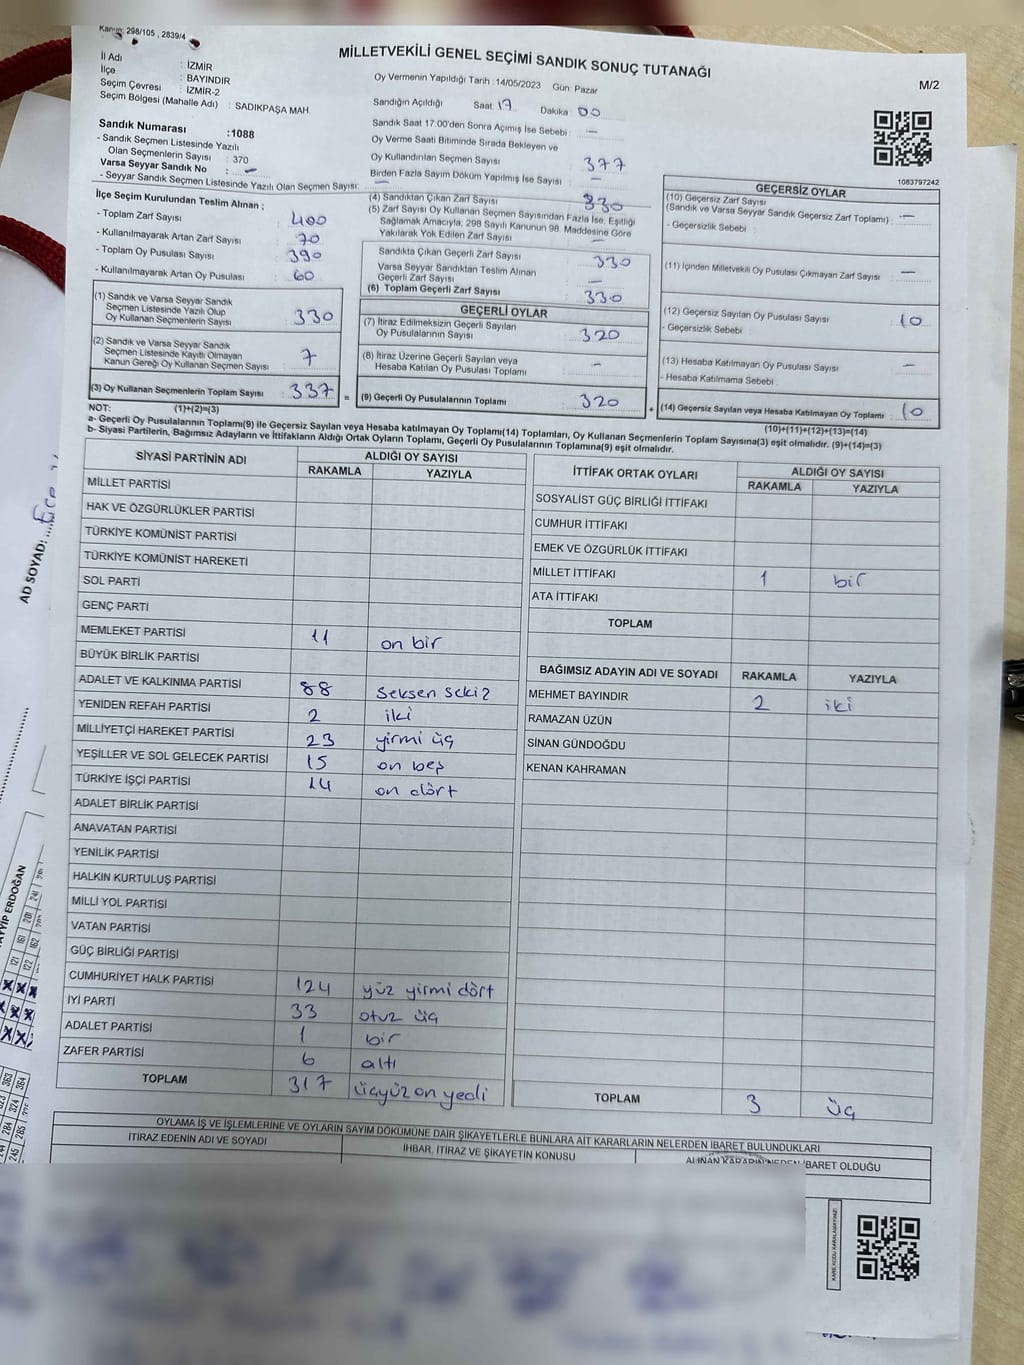 Kanun: 298/105 , 2839/4
MİLLETVEKİLİ GENEL SEÇİMİ SANDIK SONUÇ TUTANAĞI
M/2
İl Adı : İZMİR
İlçe : BAYINDIR
Seçim Çevresi : İZMİR-2
Seçim Bölgesi (Mahalle Adı) : SADIKPAŞA MAH.
Oy Vermenin Yapıldığı Tarih : 14/05/2023 Gün: Pazar
Sandığın Açıldığı Saat: 17 Dakika: 00
Sandık Saat 17:00'den Sonra Açımış İse Sebebi : —
Oy Verme Saati Bitiminde Sırada Bekleyen ve
Oy Kullandırılan Seçmen Sayısı : 377
Birden Fazla Sayım Döküm Yapılmış İse Sayısı : —
Sandık Numarası :1088
- Sandık Seçmen Listesinde Yazılı
Olan Seçmenlerin Sayısı : 370
Varsa Seyyar Sandık No : —
- Seyyar Sandık Seçmen Listesinde Yazılı Olan Seçmen Sayısı: —
1083797242
İlçe Seçim Kurulundan Teslim Alınan ;
- Toplam Zarf Sayısı : 400
- Kullanılmayarak Artan Zarf Sayısı : 70
- Toplam Oy Pusulası Sayısı : 390
- Kullanılmayarak Artan Oy Pusulası : 60
(1) Sandık ve Varsa Seyyar Sandık
Seçmen Listesinde Yazılı Olup
Oy Kullanan Seçmenlerin Sayısı : 330
(2) Sandık ve Varsa Seyyar Sandık
Seçmen Listesinde Kayıtlı Olmayan
Kanun Gereği Oy Kullanan Seçmen Sayısı : 7
(3) Oy Kullanan Seçmenlerin Toplam Sayısı : 337 =
(4) Sandıktan Çıkan Zarf Sayısı : 330
(5) Zarf Sayısı Oy Kullanan Seçmen Sayısından Fazla İse, Eşitliği
Sağlamak Amacıyla, 298 Sayılı Kanunun 98. Maddesine Göre
Yakılarak Yok Edilen Zarf Sayısı : —
Sandıkta Çıkan Geçerli Zarf Sayısı : 330
Varsa Seyyar Sandıktan Teslim Alınan
Geçerli Zarf Sayısı : —
(6) Toplam Geçerli Zarf Sayısı : 330
GEÇERLİ OYLAR
(7) İtiraz Edilmeksizin Geçerli Sayılan
Oy Pusulalarının Sayısı : 320
(8) İtiraz Üzerine Geçerli Sayılan veya
Hesaba Katılan Oy Pusulası Toplamı : —
(9) Geçerli Oy Pusulalarının Toplamı : 320 +
GEÇERSİZ OYLAR
(10) Geçersiz Zarf Sayısı
(Sandık ve Varsa Seyyar Sandık Geçersiz Zarf Toplamı) : —
- Geçersizlik Sebebi :
(11) İçinden Milletvekili Oy Pusulası Çıkmayan Zarf Sayısı : —
(12) Geçersiz Sayılan Oy Pusulası Sayısı : 10
- Geçersizlik Sebebi :
(13) Hesaba Katılmayan Oy Pusulası Sayısı : —
- Hesaba Katılmama Sebebi :
(14) Geçersiz Sayılan veya Hesaba Katılmayan Oy Toplamı : 10
NOT: (1)+(2)=(3)
(10)+(11)+(12)+(13)=(14)
a- Geçerli Oy Pusulalarının Toplamı(9) ile Geçersiz Sayılan veya Hesaba katılmayan Oy Toplamı(14) Toplamları, Oy Kullanan Seçmenlerin Toplam Sayısına(3) eşit olmalıdır. (9)+(14)=(3)
b- Siyasi Partilerin, Bağımsız Adayların ve İttifakların Aldığı Ortak Oyların Toplamı, Geçerli Oy Pusulalarının Toplamına(9) eşit olmalıdır.
SİYASİ PARTİNİN ADI ALDIĞI OY SAYISI
RAKAMLA YAZIYLA
MİLLET PARTİSİ
HAK VE ÖZGÜRLÜKLER PARTİSİ
TÜRKİYE KOMÜNİST PARTİSİ
TÜRKİYE KOMÜNİST HAREKETİ
SOL PARTİ
GENÇ PARTİ
MEMLEKET PARTİSİ 11 on bir
BÜYÜK BİRLİK PARTİSİ
ADALET VE KALKINMA PARTİSİ 88 seksen sekiz
YENİDEN REFAH PARTİSİ 2 iki
MİLLİYETÇİ HAREKET PARTİSİ 23 yirmi üç
YEŞİLLER VE SOL GELECEK PARTİSİ 15 on beş
TÜRKİYE İŞÇİ PARTİSİ 14 on dört
ADALET BİRLİK PARTİSİ
ANAVATAN PARTİSİ
YENİLİK PARTİSİ
HALKIN KURTULUŞ PARTİSİ
MİLLİ YOL PARTİSİ
VATAN PARTİSİ
GÜÇ BİRLİĞİ PARTİSİ
CUMHURİYET HALK PARTİSİ 124 yüz yirmi dört
İYİ PARTİ 33 otuz üç
ADALET PARTİSİ 1 bir
ZAFER PARTİSİ 6 altı
TOPLAM 317 üçyüz on yedi
İTTİFAK ORTAK OYLARI ALDIĞI OY SAYISI
RAKAMLA YAZIYLA
SOSYALİST GÜÇ BİRLİĞİ İTTİFAKI
CUMHUR İTTİFAKI
EMEK VE ÖZGÜRLÜK İTTİFAKI
MİLLET İTTİFAKI 1 bir
ATA İTTİFAKI
TOPLAM
BAĞIMSIZ ADAYIN ADI VE SOYADI RAKAMLA YAZIYLA
MEHMET BAYINDIR 2 iki
RAMAZAN ÜZÜN
SİNAN GÜNDOĞDU
KENAN KAHRAMAN
TOPLAM 3 üç
OYLAMA İŞ VE İŞLEMLERİNE VE OYLARIN SAYIM DÖKÜMÜNE DAİR ŞİKAYETLERLE BUNLARA AİT KARARLARIN NELERDEN İBARET BULUNDUKLARI
İTİRAZ EDENİN ADI VE SOYADI
İHBAR, İTİRAZ VE ŞİKAYETİN KONUSU
ALINAN KARARIN NEDEN İBARET OLDUĞU
AD SOYAD:
TAYYİP ERDOĞAN